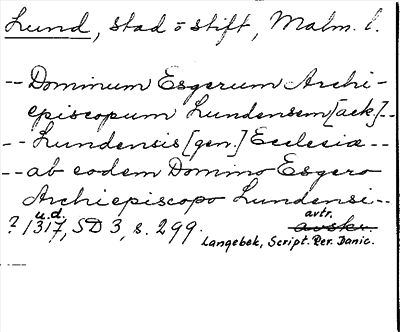 Lund, stad o stift, Malm. l.
-- Dominum Esgerum Archi-
episcopum Lundensem [ack.] --
-- Lundensis [gen.] Ecclesiæ --
-- ab eodem Domino Esgero
Archiepiscopo Lundensi --
u.d. avtr.
? 1317, SD 3, s. 299. avskr.
Langebek, Script. Rer. Danic.